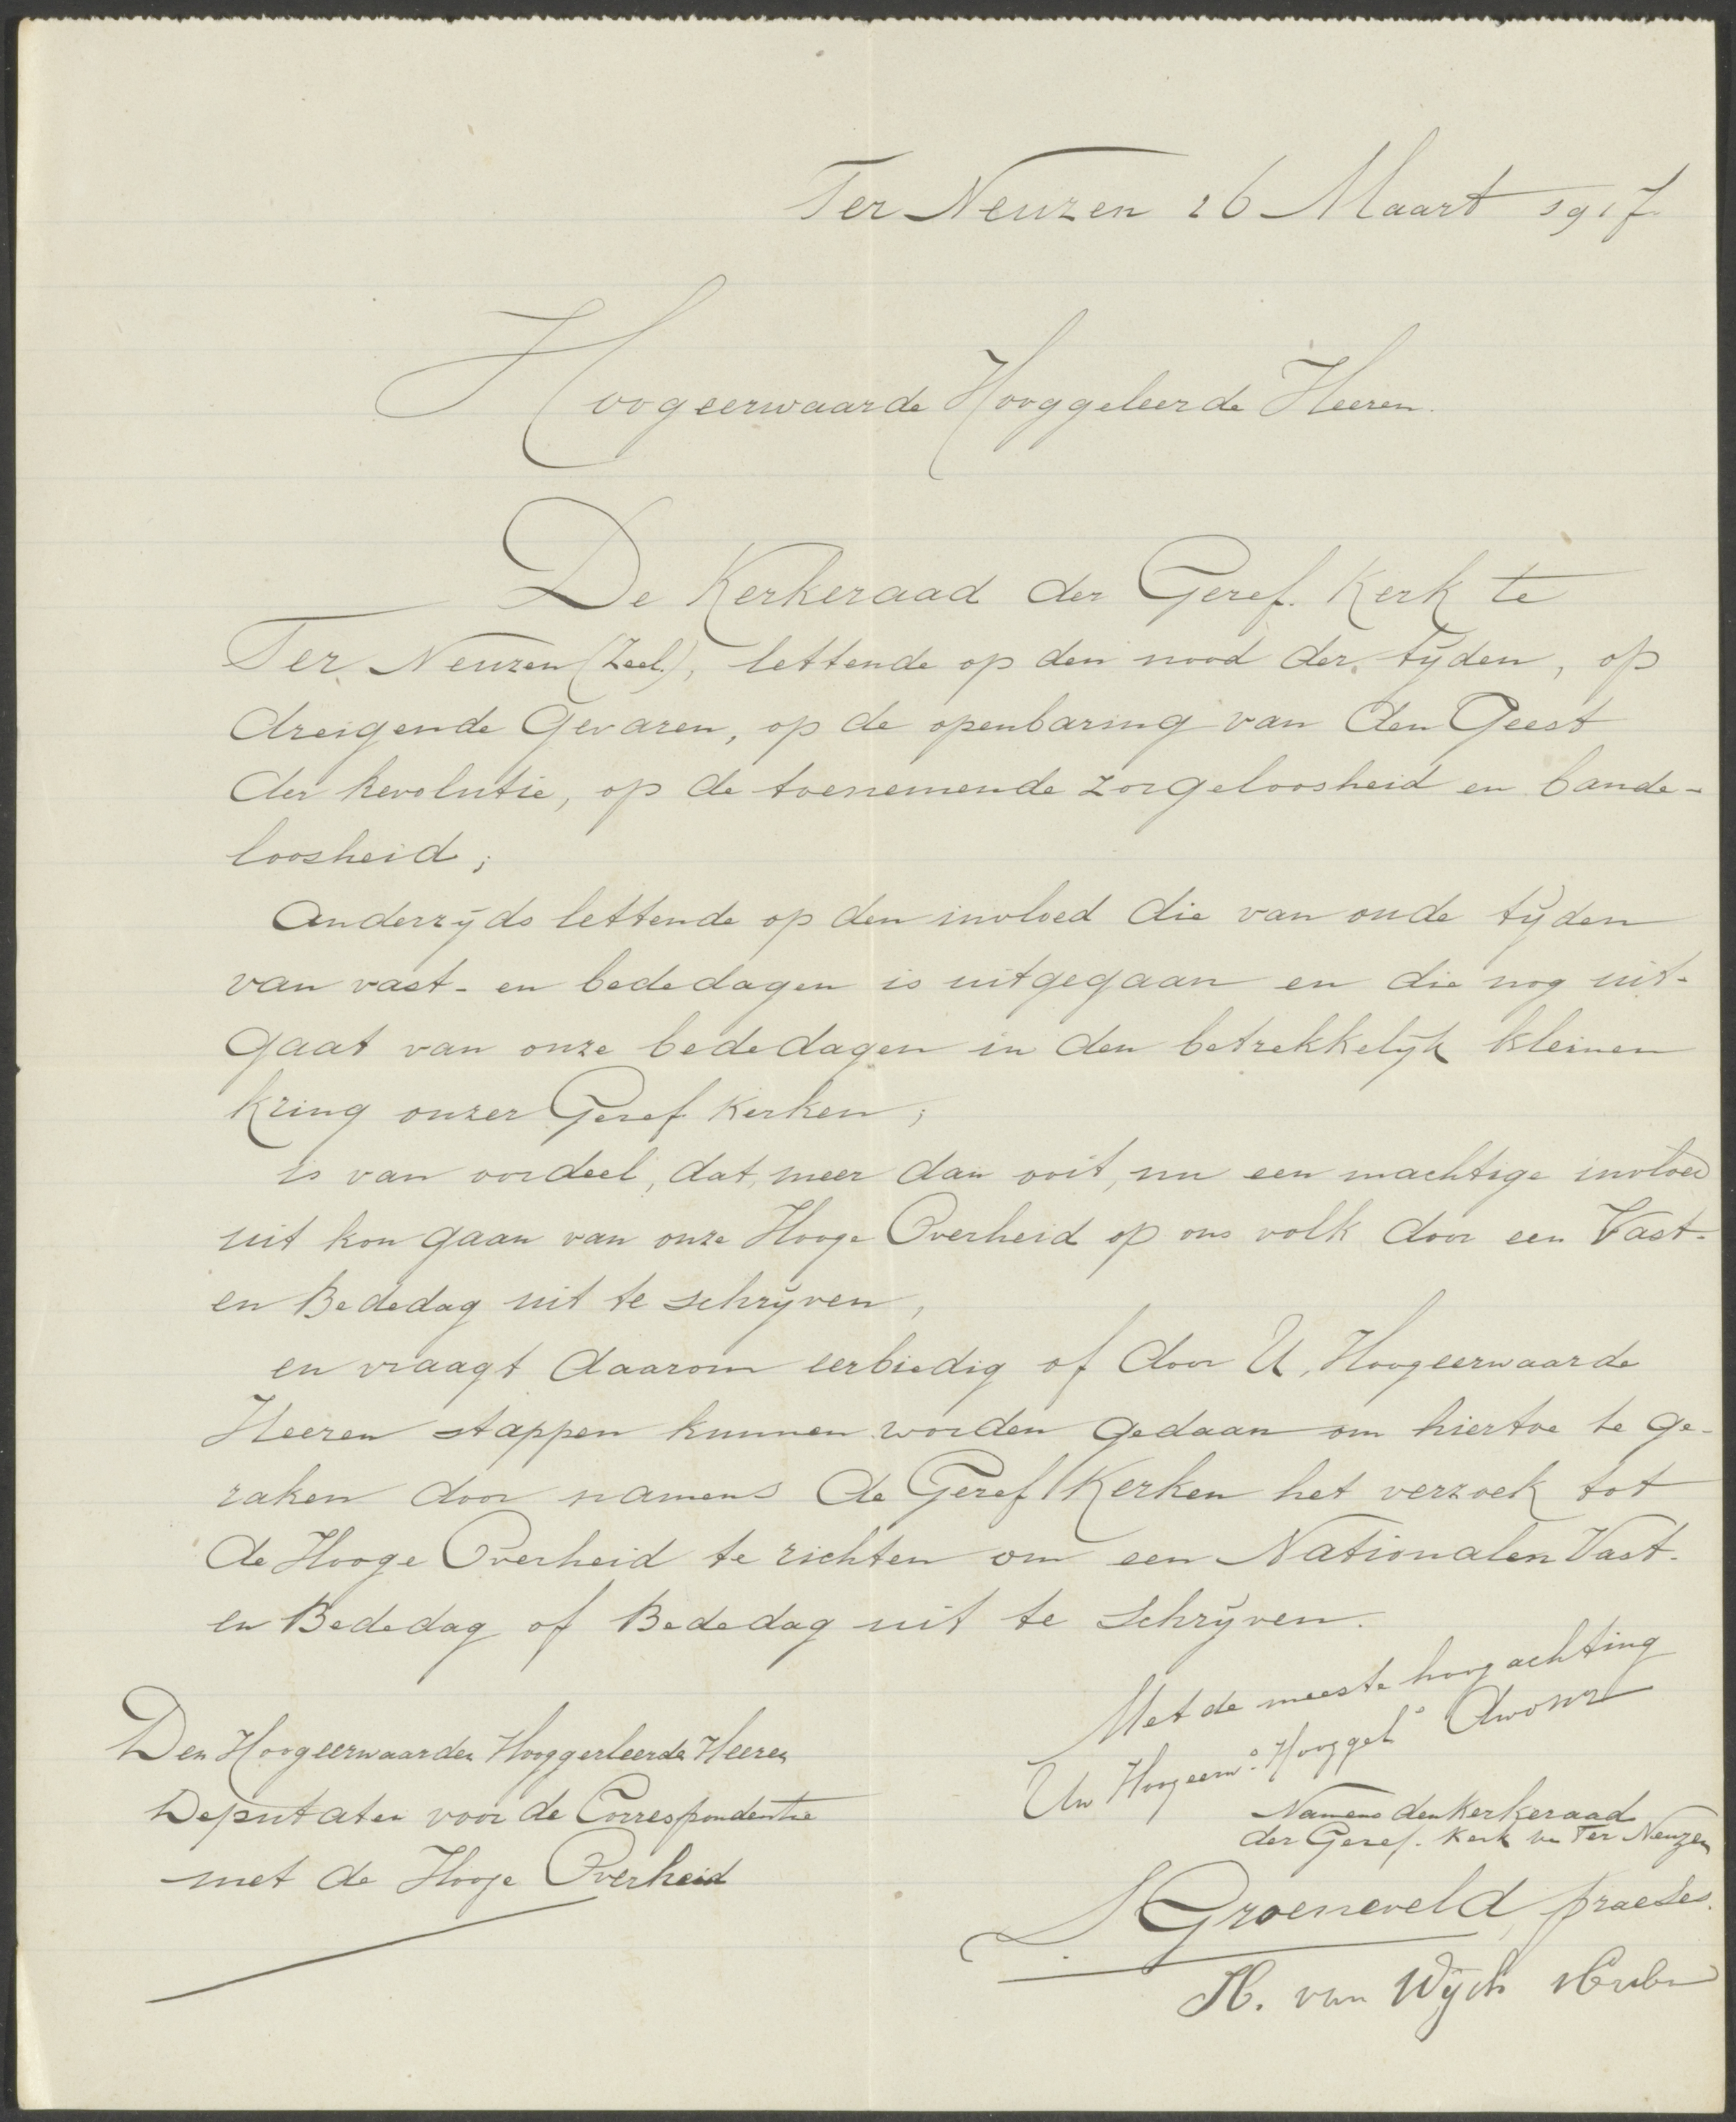 Ter Neuzen 26 Maart 1917
Hoogeerwaarde Hooggeleerde Heeren.
De Kerkeraad der Geref. Kerk te
Ter Neuzen (Zeel.), lettende op den nood der tijden, op
dreigende gevaren, op de openbaring van den Geest
der Revolutie, op de toenemende zorgeloosheid en bande-
loosheid;
Anderzijds lettende op den invloed die van oude tijden
van vast- en bededagen is uitgegaan en die nog uit-
gaat van onze bededagen in den betrekkelijk kleinen
kring onzer Geref Kerken;
is van oordeel, dat, meer dan ooit, nu een machtige invloed
uit kon gaan van onze Hooge Overheid op ons volk door een Vast-
en Bededag uit te schrijven,
en vraagt daarom eerbiedig of door U, Hoogeerwaarde
Heeren stappen kunnen worden gedaan om hiertoe te ge-
raken door namens de Geref Kerken het verzoek tot
de Hooge Overheid te richten om een Nationalen Vast-
en Bededag of Bededag uit te schrijven.
Met de meeste hoogachting
Uw Hoogeerw. Hooggel Dwdnr
Namens den Kerkeraad
der Geref. Kerk v. Ter Neuzen
Groeneveld praeses.
H. van Wijck scriba
Den Hoogeerwaarden Hooggerleerde Heeren
Deputaten voor de Correspondentie
met de Hooge Overheid